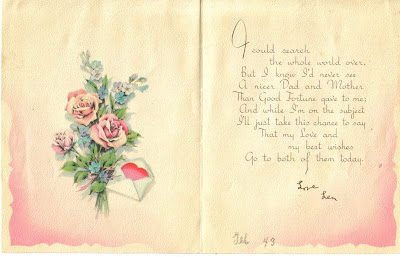 I could search
the whole world over,
But I know I'd never see
A nicer Dad and Mother
Than Good Fortune gave to me;
And while I'm on the subject
I'll just take this chance to say
That my Love and
my best wishes
Go to both of them today.
Love
Len
Feb 43